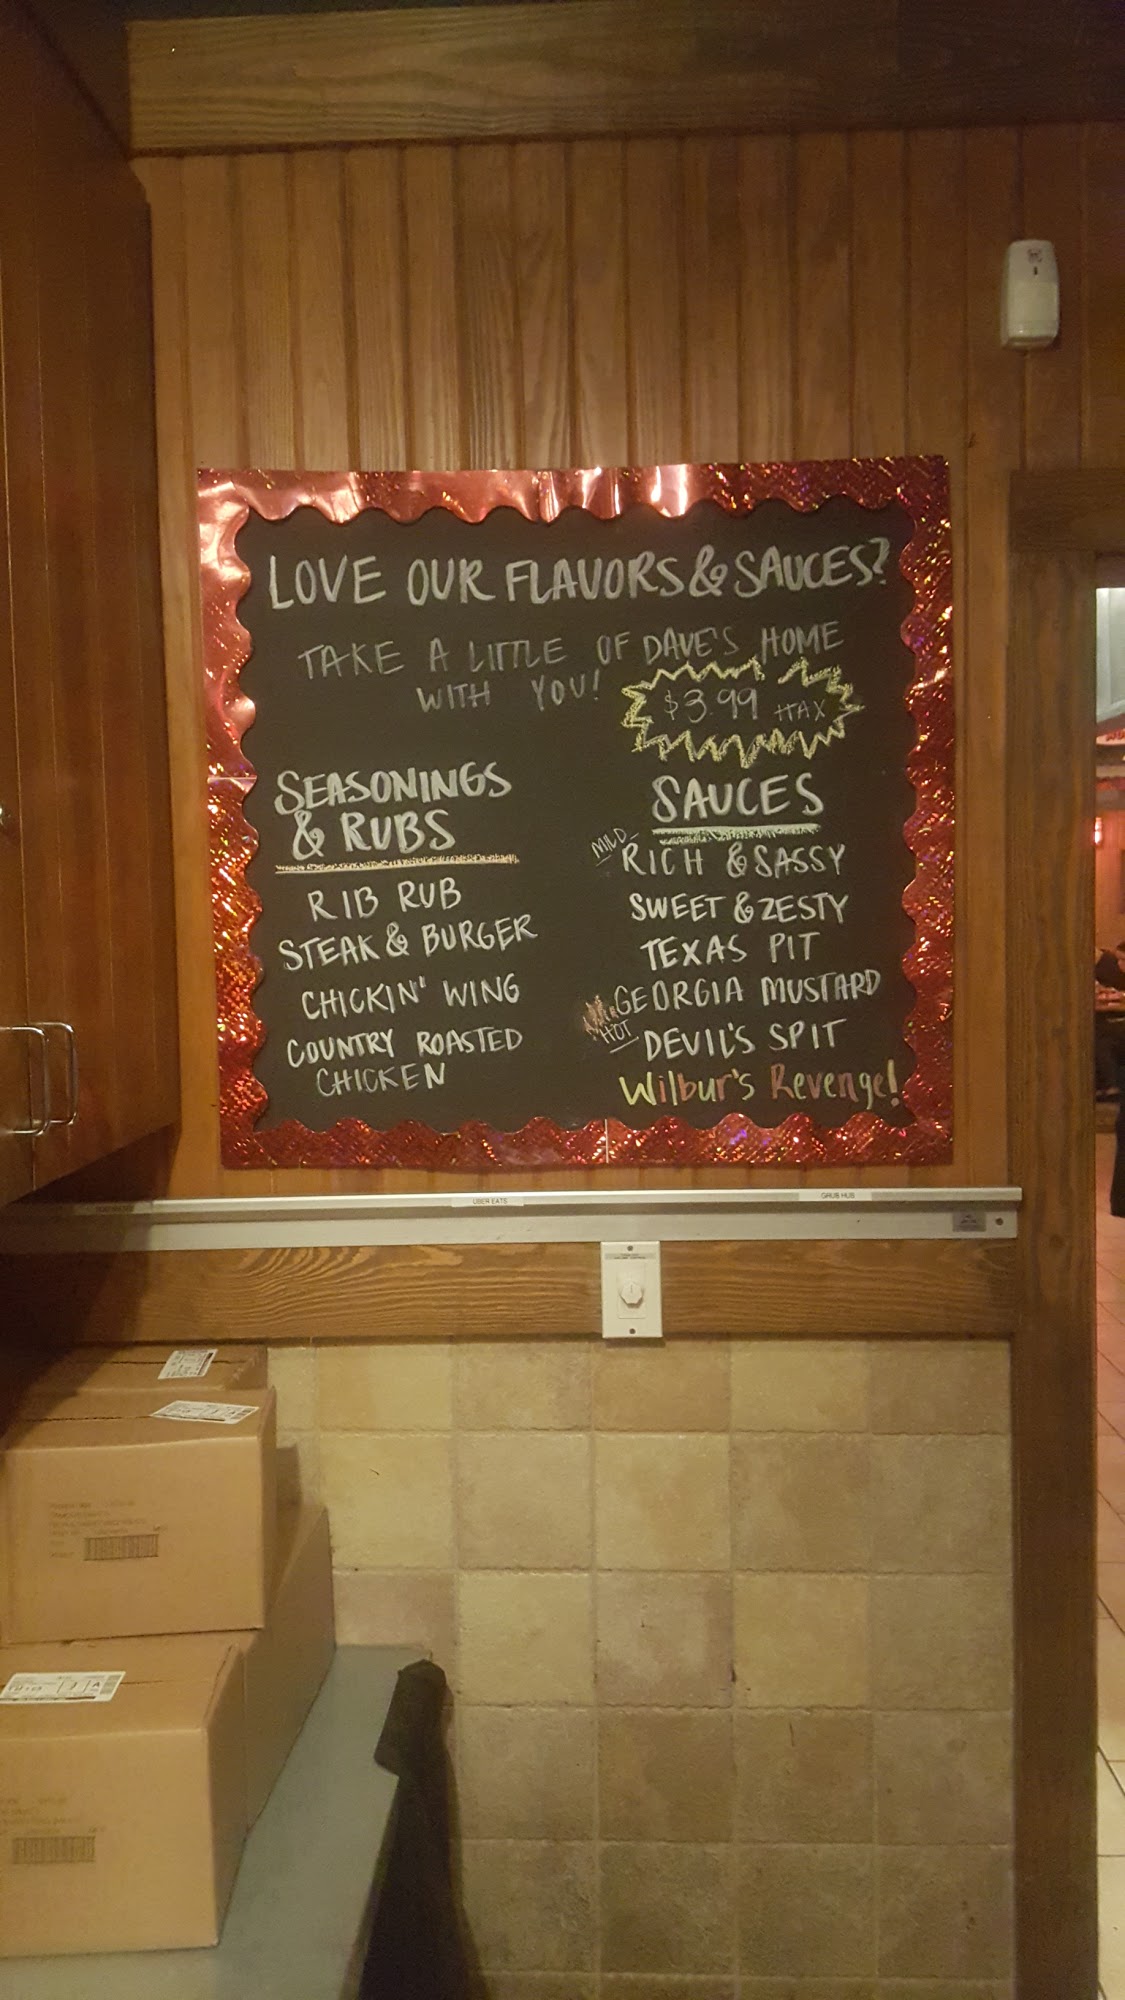 LOVE OUR FLAVORS & SAUCES?
TAKE A LITTLE OF DAVE'S HOME
WITH YOU!
$3.99 +TAX
SEASONINGS
& RUBS
RIB RUB
STEAK & BURGER
CHICKIN' WING
COUNTRY ROASTED
CHICKEN
SAUCES
MILD-
RICH & SASSY
SWEET & ZESTY
TEXAS PIT
GEORGIA MUSTARD
HOT
DEVIL'S SPIT
Wilbur's Revenge!
UBER EATS
GRUB HUB